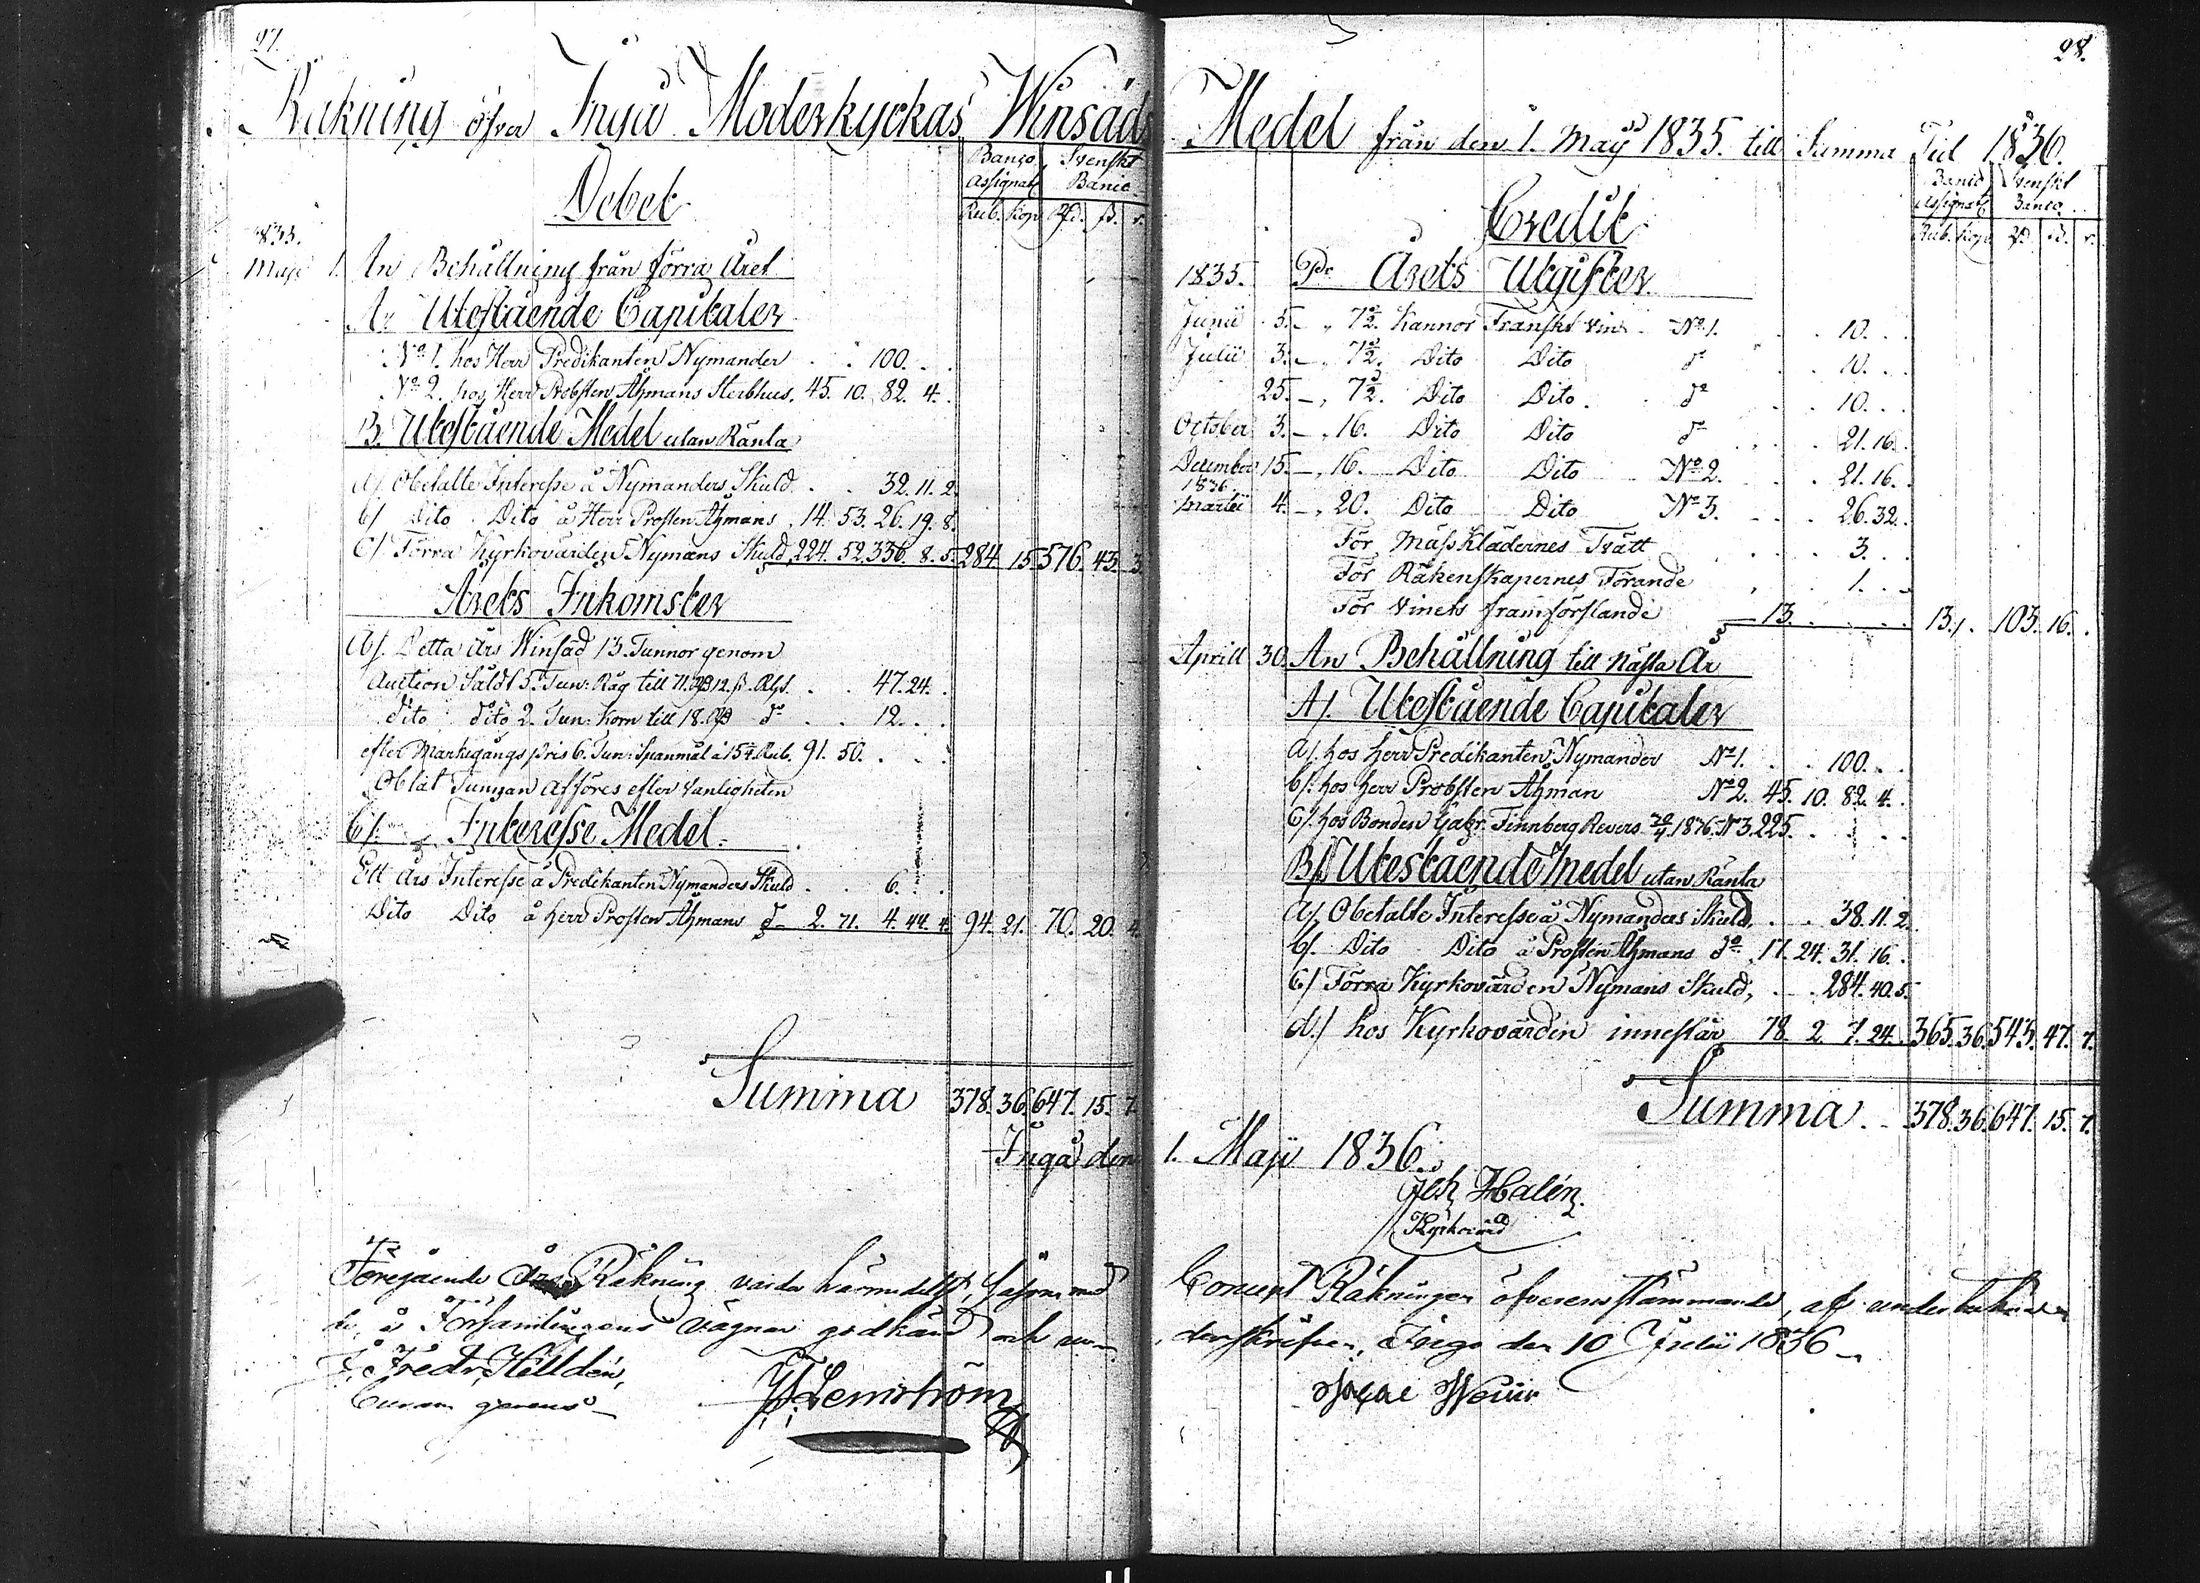 27.
Räkning öfver Ingå Moderkyrkas Winsäds
Banco Svenskt
Assignat Banco
Debet
Rub. Kop Rd. ß. r.
1835.
Maji 1. An Behållning från förra Året
A. Utestående Capitaler
No 1. hos Herr Predikanten Nymander . . 100. . .
No 2. hos Herr Probsten Åhmans Sterbhus. 45. 10. 82. 4.
B. Utestående Medel utan Ränta
a/. Obetalte Interesse å Nymanders Skuld . . 32. 11. 2.
b/ Dito Dito å Herr Prosten Åhmans . 14. 53. 26. 19. 8.
C/ Förra Kyrkovärden Nymans Skuld, 224. 52. 336. 8. 5. 284 15. 576. 43. 3.
Årets Inkomster
A/. Detta Års Winsäd 13. Tunnor genom
Auction Såldt 5. Tun: Råg till 71. Rd 12. ß. Rgs. . . 47. 24. .
dito dito 2. Tun: Korn till 18. Rd do . . 12. . .
efter Markegångs pris 6. Tun: Spanmål à 15 1/4 Rub. 91. 50. . . .
Oblat Tunnan Afföres efter Vanligheten
b/. Interesse Medel.
Ett Års Interesse å Predikanten Nymanders Skuld . . 6. . .
Dito Dito å Herr Prosten Åhmans do 2. 71. 4. 44. 4. 94. 21. 70. 20. 4.
Summa 378. 36. 647. 15. 7.
Ingå den
Föregående Räkning varder härmedelst, såsom med
å Församlingens vägnar godkänd och un-
F. Fredr. Helldén,
Curam gerens
Lemström
28.
Medel från den 1. Maji 1835. till Samma Tid 1836.
Banco Svenskt
Assignat Banco
Credit
Rub. Kop Rd. ß. r.
1835. Pr Årets Utgifter
Junii 5. - " 7 1/2. Kannor Franskt vin No 1. . . 10. . .
Julii 3. - " 7 1/2. Dito Dito do . . 10. . .
25. - " 7 1/2. Dito Dito. do . . 10. . .
October 3. - " 16. Dito Dito do . . 21. 16. .
December 15. - " 16. Dito Dito No 2. . . 21. 16. .
1836
Martii 4. - " 20. Dito Dito No 3. . . 26. 32. .
För Mässklädernes Tvätt . . 3. . .
För Räkenskapernes Förande . . 1. . .
För Vinets framförslande 13. . . . 13. . 103. 16. .
Aprill 30 An Behållning till nästa År
A/. Utestående Capitaler
a/. hos Herr Predikanten Nymander No 1. . . 100. . .
b/. hos Herr Probsten Åhman No 2. 45. 10. 82. 4. .
C/. hos Bonden Gabr. Finnberg Revers 30/4 1836. No 3. 225. . . . .
B/. Utestående Medel utan Ränta
a/. Obetalte Interesse å Nymanders Skuld, . . 38. 11. 2.
b/. Dito Dito å Prosten Åhmans do . 17. 24. 31. 16. .
C/ Förra Kyrkovärden Nymans Skuld, . . 284. 40. 5.
d./ hos Kyrkovärden innestår 78. 2. 7. 24. 365. 36. 543. 47. 7.
Summa . . 378. 36. 647. 15. 7.
1. Maji 1836.
Joh Halén
Kyrkovärd
Räkningen öfverensstämmande, af
derskrifven. Ingo den 10 Julii 1836